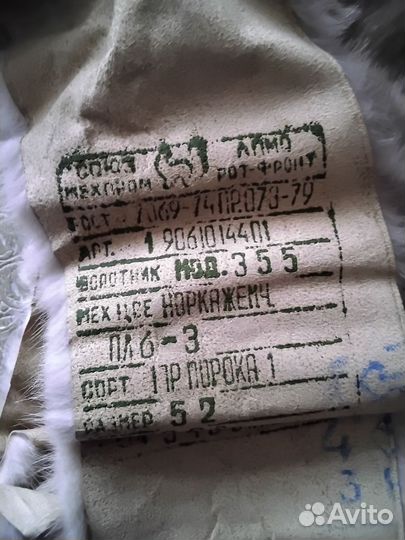 СОЮЗ ЛПМО
МЕХПРОМ РОТ-ФРОНТ
ГОСТ 7069-74 ПР 073-79
АРТ. 1 9061014401
ВОРОТНИК МОД. 355
МЕХ ЦЕЛ НОРКАЖЕНЧ
ПЛ 6-3
СОРТ 1 ГР ПОРОКА 1
РАЗМЕР 52
Avito